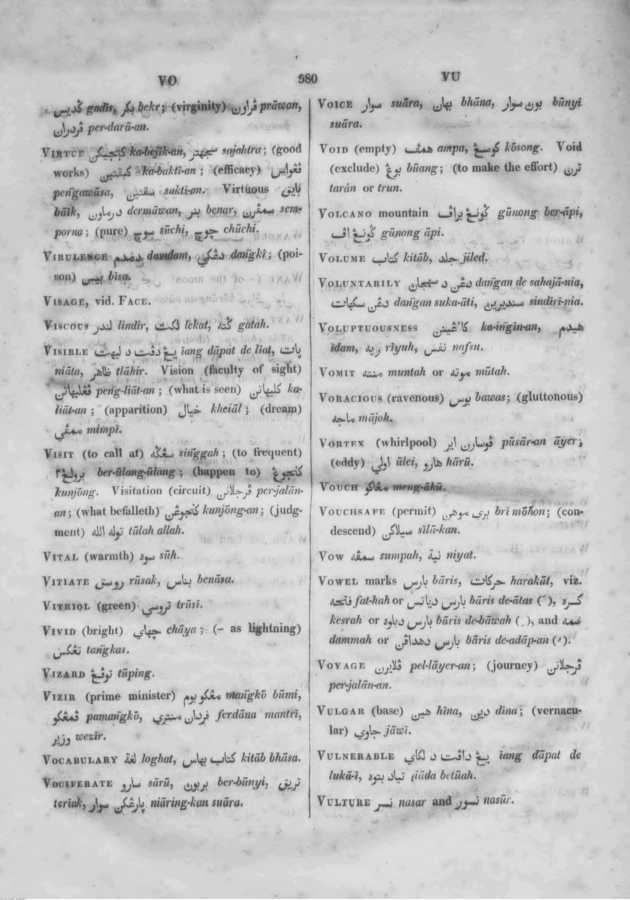 VO
980
VU
ڬديس gadis, بكر bekr; (virginity) ڤراون prāwan,
ڤردران per-darā-an.
VIRTUE كبجيكن ka-bejik-an, سجهتر sajahtra; (good
works) كبقتين ka-bakti-an; (efficacy) ڤڠواس
peṅgawāsa, سقتين sakti-an. Virtuous بايق
bāik, درماون dermāwan, بنر benar, سمڤرن sem-
porna; (pure) سوچ sūchi, چوچ chūchi.
VIRULENCE دمدم damdam, دڠكي daṅgkī; (poi-
son) بيس bisa.
VISAGE, vid. FACE.
VISCOUS لندر lindir, لكت lekat, گته gatah.
VISIBLE يڠ داڤت د ليهت iang dāpat de liat, پات
niāta, ظاهر tlāhir. Vision (faculty of sight)
ڤڠليهاتن peṅg-liāt-an; (what is seen) كليهاتن ka-
liāt-an; (apparition) خيال kheiāl; (dream)
ممڤي mimpī.
VISIT (to call at) سڠگه siṅggah; (to frequent)
برولڠ٢ ber-ūlang-ūlang; (happen to) كنجوڠ
kunjōng. Visitation (circuit) ڤرجلانن per-jalān-
an; (what befalleth) كنجوڠن kunjōng-an; (judg-
ment) توله الله tūlah allah.
VITAL (warmth) سوه sūh.
VITIATE روسق rūsak, بناس benāsa.
VITRIOL (green) تروسي trūsī.
VIVID (bright) چهاي chāya; (– as lightning)
تڠكس taṅgkas.
VIZARD توڤڠ tūping.
VIZIR (prime minister) مڠكو بوم maṅgkō būmi,
ڤمڠكو pamaṅgkō, فردان منتري ferdāna mantrī,
وزير wezīr.
VOCABULARY لغة loghat, كتاب بهاس kitāb bhāsa.
VOCIFERATE سارو sārū, بربون ber-būnyi, تريق
teriak, پارڠكن سوار niāring-kan suāra.
VOICE سوار suāra, بهان bhāna, بون سوار būnyi
suāra.
VOID (empty) همڤ ampa, كوسڠ kōsong. Void
(exclude) بوڠ būang; (to make the effort) ترن
tarān or trun.
VOLCANO mountain گونڠ براڤ gūnong ber-āpi,
گونڠ اڤ gūnong āpi.
VOLUME كتاب kitāb, جلد jiled.
VOLUNTARILY دڠن د سهجان daṅgan de sahajā-nia,
دڠن سكهات daṅgan suka-āti, سنديرين sindīrī-nia.
VOLUPTUOUSNESS كاءڠينن ka-iṅgin-an, هيدم
īdam, ريه rīyuh, نفس nafsu.
VOMIT منته muntah or موته mūtah.
VORACIOUS (ravenous) بوس bawas; (gluttonous)
ماجه mājoh.
VORTEX (whirlpool) ڤوسارن اير pūsār-an āyer;
(eddy) اولي ūlei, هارو hārū.
VOUCH مڠاكو meng-ākū.
VOUCHSAFE (permit) بري موهن brī mōhon; (con-
descend) سيلاكن sīlā-kan.
VOW سمڤه sumpah, نية niyat.
VOWEL marks بارس bāris, حركات harakāt, viz.
فاتحه fat-hah or بارس دياتس bāris de-ātas (َ), كسره
kesrah or بارس دباوه bāris de-bāwah (ِ), and ضمه
dammah or بارس دهداڤن bāris de-adāp-an (ُ).
VOYAGE ڤلايرن pel-lāyer-an; (journey) ڤرجلانن
per-jalān-an.
VULGAR (base) هين hīna, دين dina; (vernacu-
lar) جاوي jāwī.
VULNERABLE يڠ داڤت د لكاي iang dāpat de
lukā-ī, تياد بتوه tiāda betūah.
VULTURE نسر nasar and نسور nasūr.